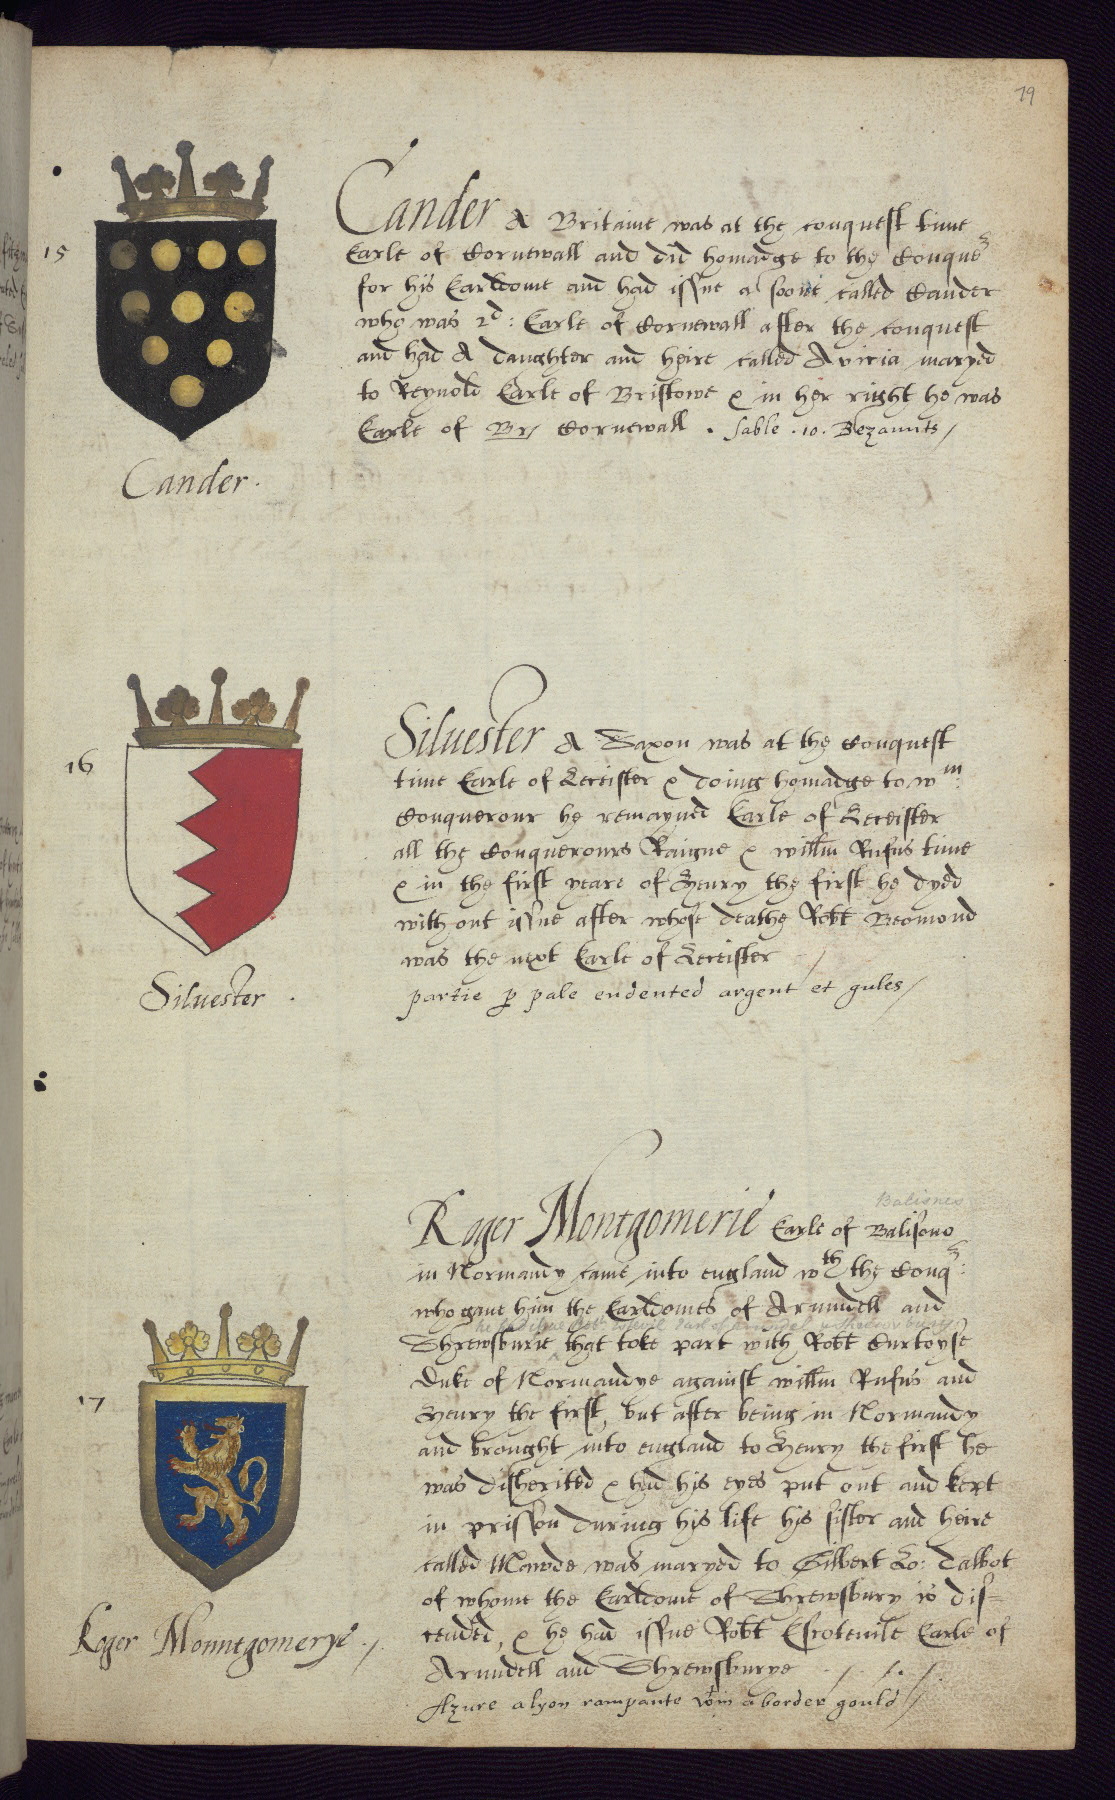 19
15
Cander A Britaine was at the conquest time
Earle of Cornewall and did homadge to the Conque
for his Earldome and had issue a soone called Cander
who was 2d: Earle of Cornewall after the conquest
and had A daughter and heire called Avicia maryed
to Reynold Earle of Bristowe & in her right he was
Earle of Br/ Cornewall . Sable .10. Bezannts /
Cander .
16
Siluester A Saxon was at the Conquest
time Earle of Leceister & doing homadge to wm:
Conquerour he remayned Earle of Leceister
all the Conquerours Raigne & willm Rufus time
& in the first yeare of Henry the first he dyed
with out issue after whose deathe Robt Beomond
was the next Earle of Leceister /
partie p pale endented argent et gules /
Siluester .
Balisnes
Roger Montgomerie Earle of Balisono
in Normandy came into england wth the Conq:
who gaue him the Earldomes of Arundell and
he had issue Robt Earl of arundel & Shrewsbury
Shrewsburie that toke part with Robt Curtoyse
Duke of Normandye against willm Rufus and
Henry the first, but after being in Normandy
and brought into england to Henry the first he
was disherited & had his eyes put out and kept
in prisson during his life his sister and heire
called Mawde was maryed to Gilbert Lo: Talbot
of whome the Earldome of Shrewsbury is dis=
cended, & he had issue Robt Earle of
Arundell and Shrewsburye ./. /. /.
Azure a lyon rampante wthin a border gould /
17
Roger Monntgomerye ./.